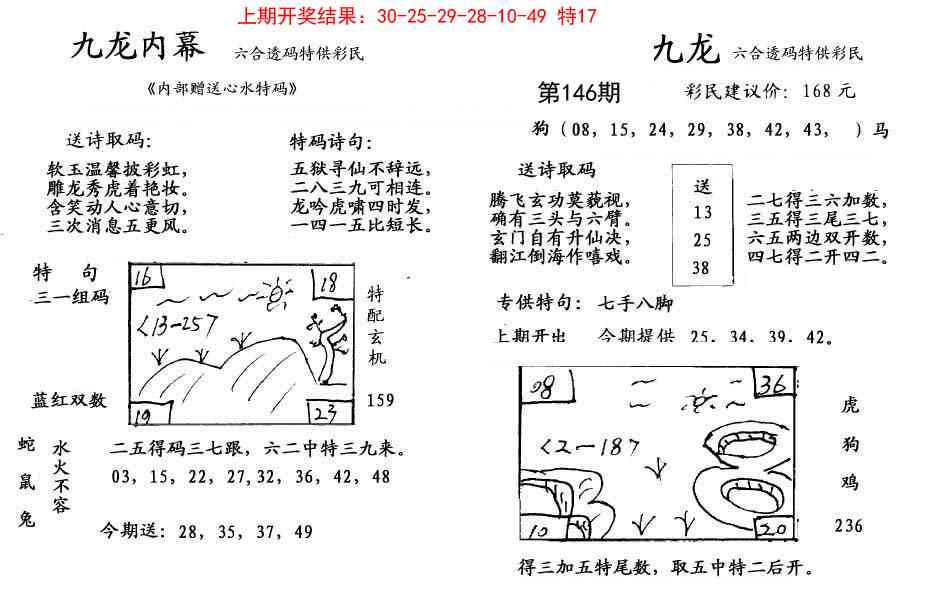 上期开奖结果：30-25-29-28-10-49 特17
九龙内幕 六合透码特供彩民
《内部赠送心水特码》
送诗取码：
软玉温馨披彩虹，
雕龙秀虎着艳妆。
含笑动人心意切，
三次消息五更风。
特码诗句：
五狱寻仙不辞远，
二八三九可相连。
龙吟虎啸四时发，
一四一五比短长。
特 句
三一组码
蓝红双数
16
18
<13-257
19
23
特配玄机
159
蛇
鼠
兔
水火不容
二五得码三七跟，六二中特三九来。
03，15，22，27，32，36，42，48
今期送：28，35，37，49
九龙 六合透码特供彩民
第146期 彩民建议价：168元
狗（08，15，24，29，38，42，43， ）马
送诗取码
腾飞玄功莫藐视，
确有三头与六臂。
玄门自有升仙决，
翻江倒海作嘻戏。
送
13
25
38
二七得三六加数，
三五得三尾三七，
六五两边双开数，
四七得二开四二。
专供特句：七手八脚
上期开出 今期提供 25．34．39．42。
08
36
<2-187
10
20
虎
狗
鸡
236
得三加五特尾数，取五中特二后开。